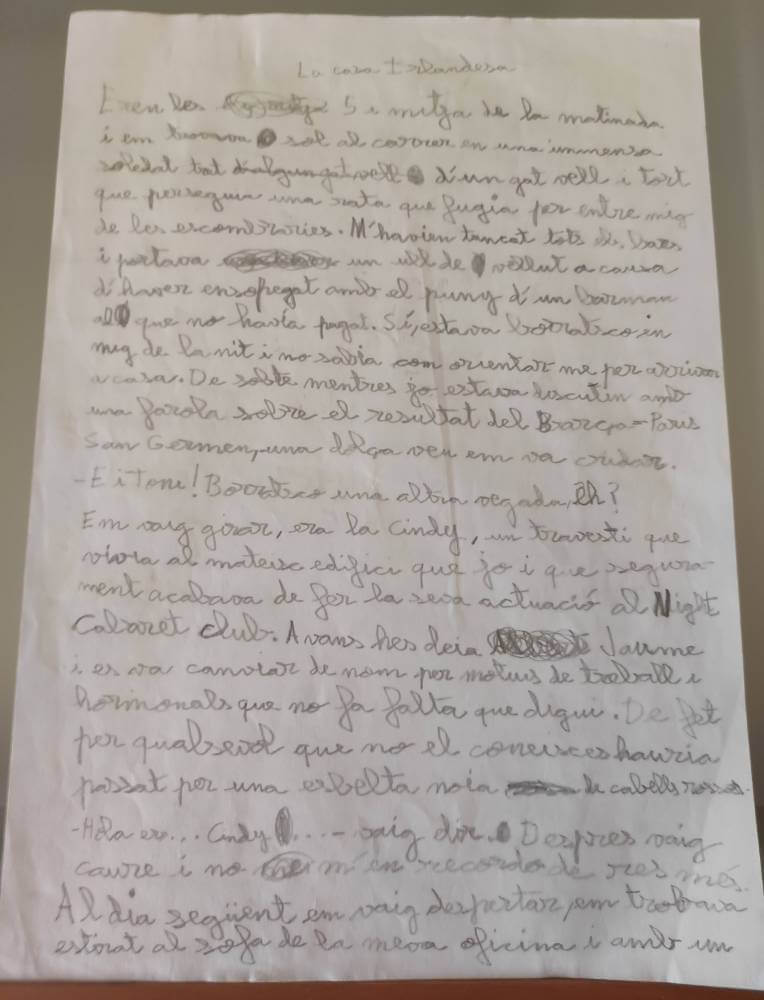 La casa Irlandesa
Eren les 5 i mitja de la matinada
i em trovava sol al carrer en una immensa
soledat tat d'un gat vell i tort
que perseguia una rata que fugia per entre mig
de les escombraries. M'havien tancat tots els bars
i portava un ull de vellut a causa
d'haver ensopegat amb el puny d'un barman
al que no havia pagat. Sí, estava borratxo en
mig de la nit i no sabia com orientar me per arrivar
a casa. De sobte mentres jo estava discutin amb
una farola sobre el resultat del Barça-Paris
San Germen, una dolça veu em va cridar.
-Ei Toni! Borratxo una altra vegada, Eh?
Em vaig girar, era la Cindy, un travesti que
vivia al mateix edifici que jo i que segura-
ment acabava de fer la seva actuació al Night
Cabaret club. Avans hes deia Jaume
i es va canviar de nom per motius de treball i
hormonals que no fa falta que digui. De fet
per qualsevol que no el coneixes hauria
passat per una esbelta noia de cabells rossos.
-Hola er... Cindy ... - vaig dir. Despres vaig
caure i no m'en recordo de res més.
Al dia següent em vaig despertar, em trobava
estirat al sofa de la meva oficina i amb un